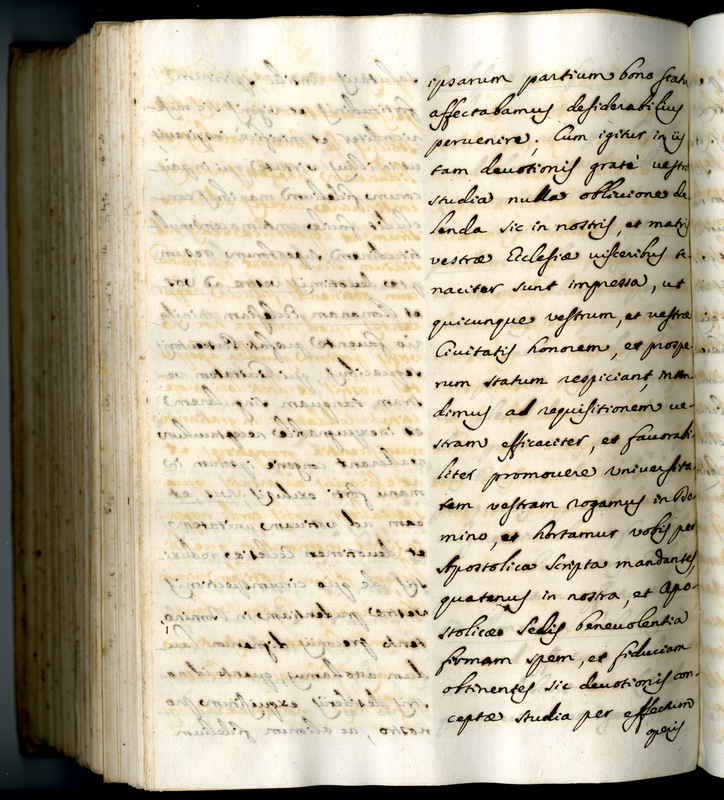 ipsarum partium bono statu
affectabamus desiderabilius
peruenire; Cum igitur in ijs
tam deuotionis gratè vestræ
studia nulla obliuione de
lenda sic in nostris, et matris
vestræ Ecclesiæ uisceribus te
naciter sunt impressa, ut
quicunque vestrum, et vestræ
Ciuitatis honorem, et prospe
rum statum respiciant, inten
dimus ad requisitionem ve-
stram efficaciter, et fauorabi
liter promouere vniuersita
tem vestram rogamus in Do-
mino, et hortamur vobis per
Apostolica scripta mandantes,
quatenus in nostra, et Apo-
stolicæ Sedis beneuolentia
firmam spem, et fiduciam
obtinentes sic deuotionis con-
ceptæ studia per effectum
operis